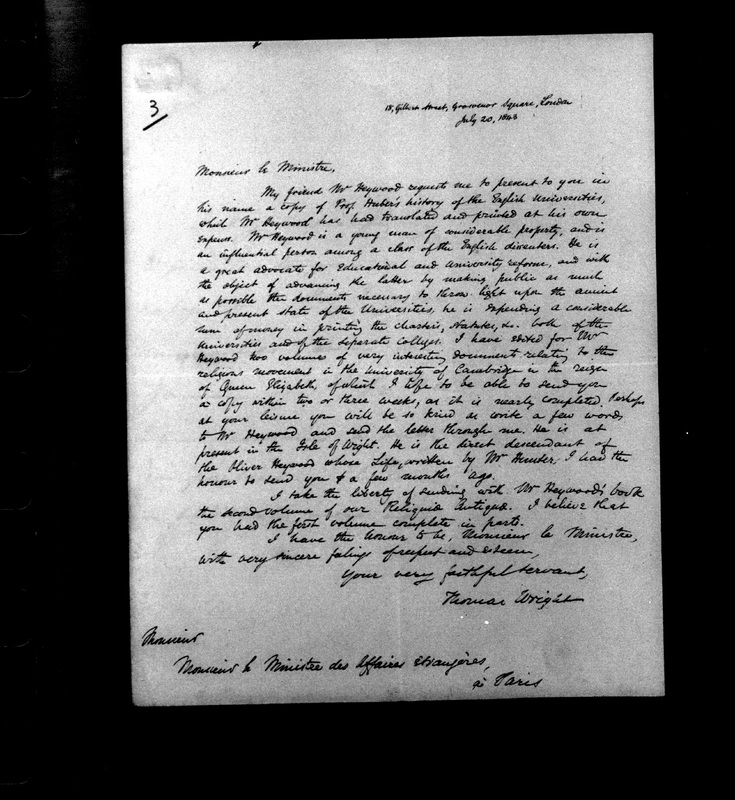 3
18, Gilbert Street, Grosvenor Square, London
July 20, 1843
Monsieur le Ministre,
My friend Mr Heywood requests me to present to you in
his name a copy of Prof. Huber's history of the English Universities,
which Mr Heywood has had translated and printed at his own
expense. Mr Heywood is a young man of considerable property, and is
an influential person among a class of the English dissenters. He is
a great advocate for Educational and University reform, and with
the object of advancing the latter by making public as much
as possible the documents necessary to throw light upon the ancient
and present state of the Universities, he is expending a considerable
sum of money in printing the charters, statutes, &c. both of the
Universities and of the separate colleges. I have edited for Mr
Heywood two volumes of very interesting documents relating to the
religious movement in the University of Cambridge in the reign
of Queen Elizabeth, of which I hope to be able to send you
a copy within two or three weeks, as it is nearly completed. Perhaps
at your leisure you will be so kind as write a few words
to Mr Heywood and send the letter through me. He is at
present in the Isle of Wight. He is the direct descendant of
the Oliver Heywood whose Life, written by Mr Hunter, I had the
honour to send you a few months ago.
I take the liberty of sending with Mr Heywood's book
the second volume of our Reliquiæ Antiquæ. I believe that
you had the first volume complete in parts.
I have the honour to be, Monsieur le Ministre,
with very sincere feelings of respect and esteem,
Your very faithful servant,
Thomas Wright
Monsieur
Monsieur le Ministre des Affaires étrangères,
à Paris